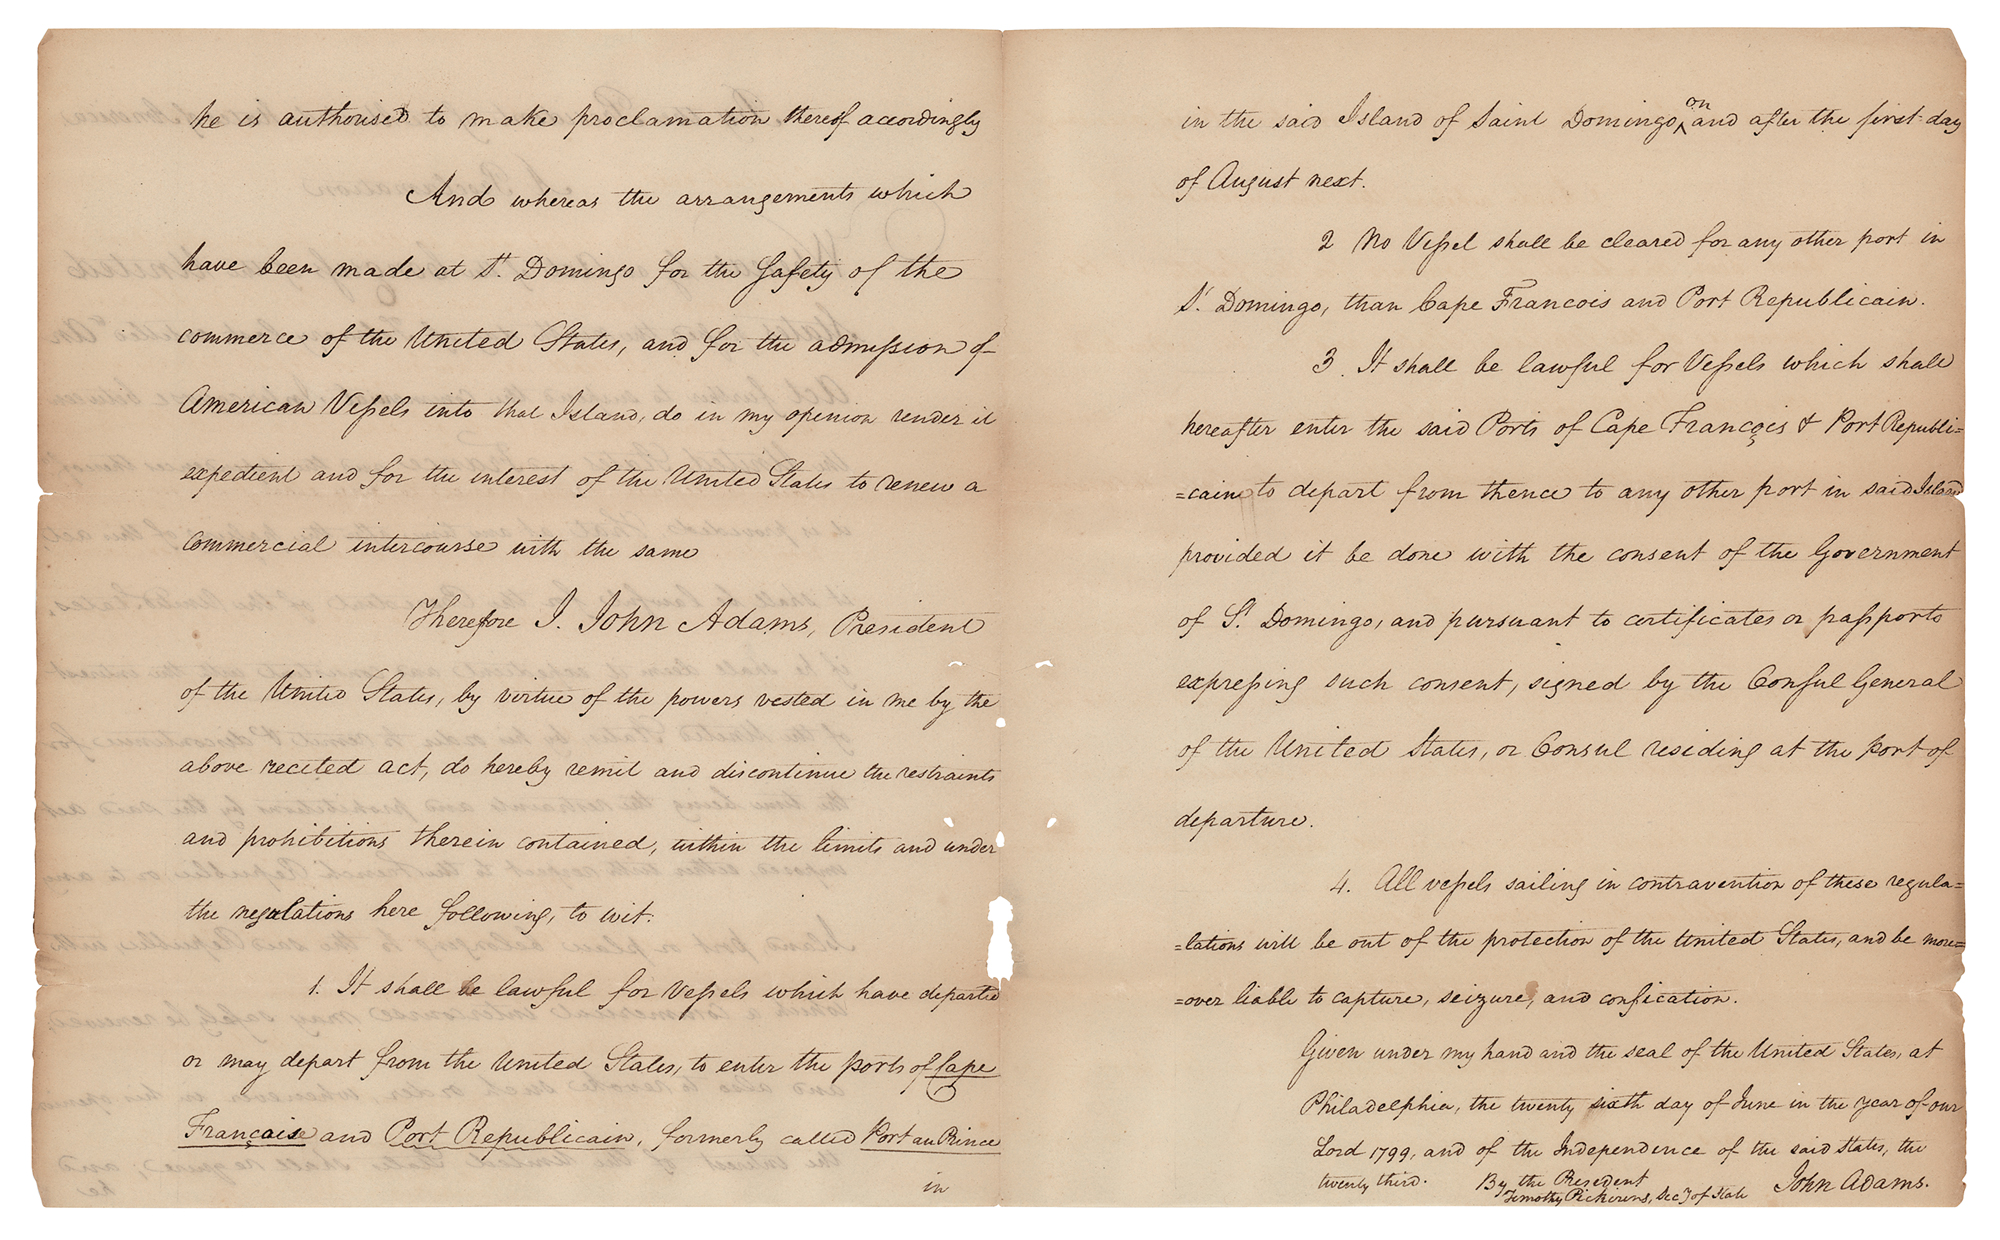 he is authorised to make proclamation thereof accordingly
And whereas the arrangements which
have been made at St. Domingo for the safety of the
commerce of the United States, and for the admission of
American Vessels into that Island, do in my opinion render it
expedient and for the interest of the United States to renew a
commercial intercourse with the same
Therefore I. John Adams, President
of the United States, by virtue of the powers vested in me by the
above recited act, do hereby remit and discontinue the restraints
and prohibitions therein contained, within the limits and under
the regulations here following, to wit.
1. It shall be lawful for Vessels which have departed
or may depart from the United States, to enter the ports of Cape
Française and Port Republicain, formerly called Port au Prince
in
in the said Island of Saint Domingo, on and after the first day
of August next.
2 No Vessel shall be cleared for any other port in
St. Domingo, than Cape Francois and Port Republicain.
3. It shall be lawful for Vessels which shall
hereafter enter the said Ports of Cape François & Port Republi=
=cain, to depart from thence to any other port in said Island
provided it be done with the consent of the Government
of St. Domingo, and pursuant to certificates or passports
expressing such consent, signed by the Consul General
of the United States, or Consul residing at the port of
departure.
4. All vessels sailing in contravention of these regula=
=lations will be out of the protection of the United States, and be more=
=over liable to capture, seizure, and confication.
Given under my hand and the seal of the United States, at
Philadelphia, the twenty sixth day of June in the year of our
Lord 1799, and of the Independence of the said States, the
twenty third. By the President John Adams.
Timothy Pickering, Secy of State